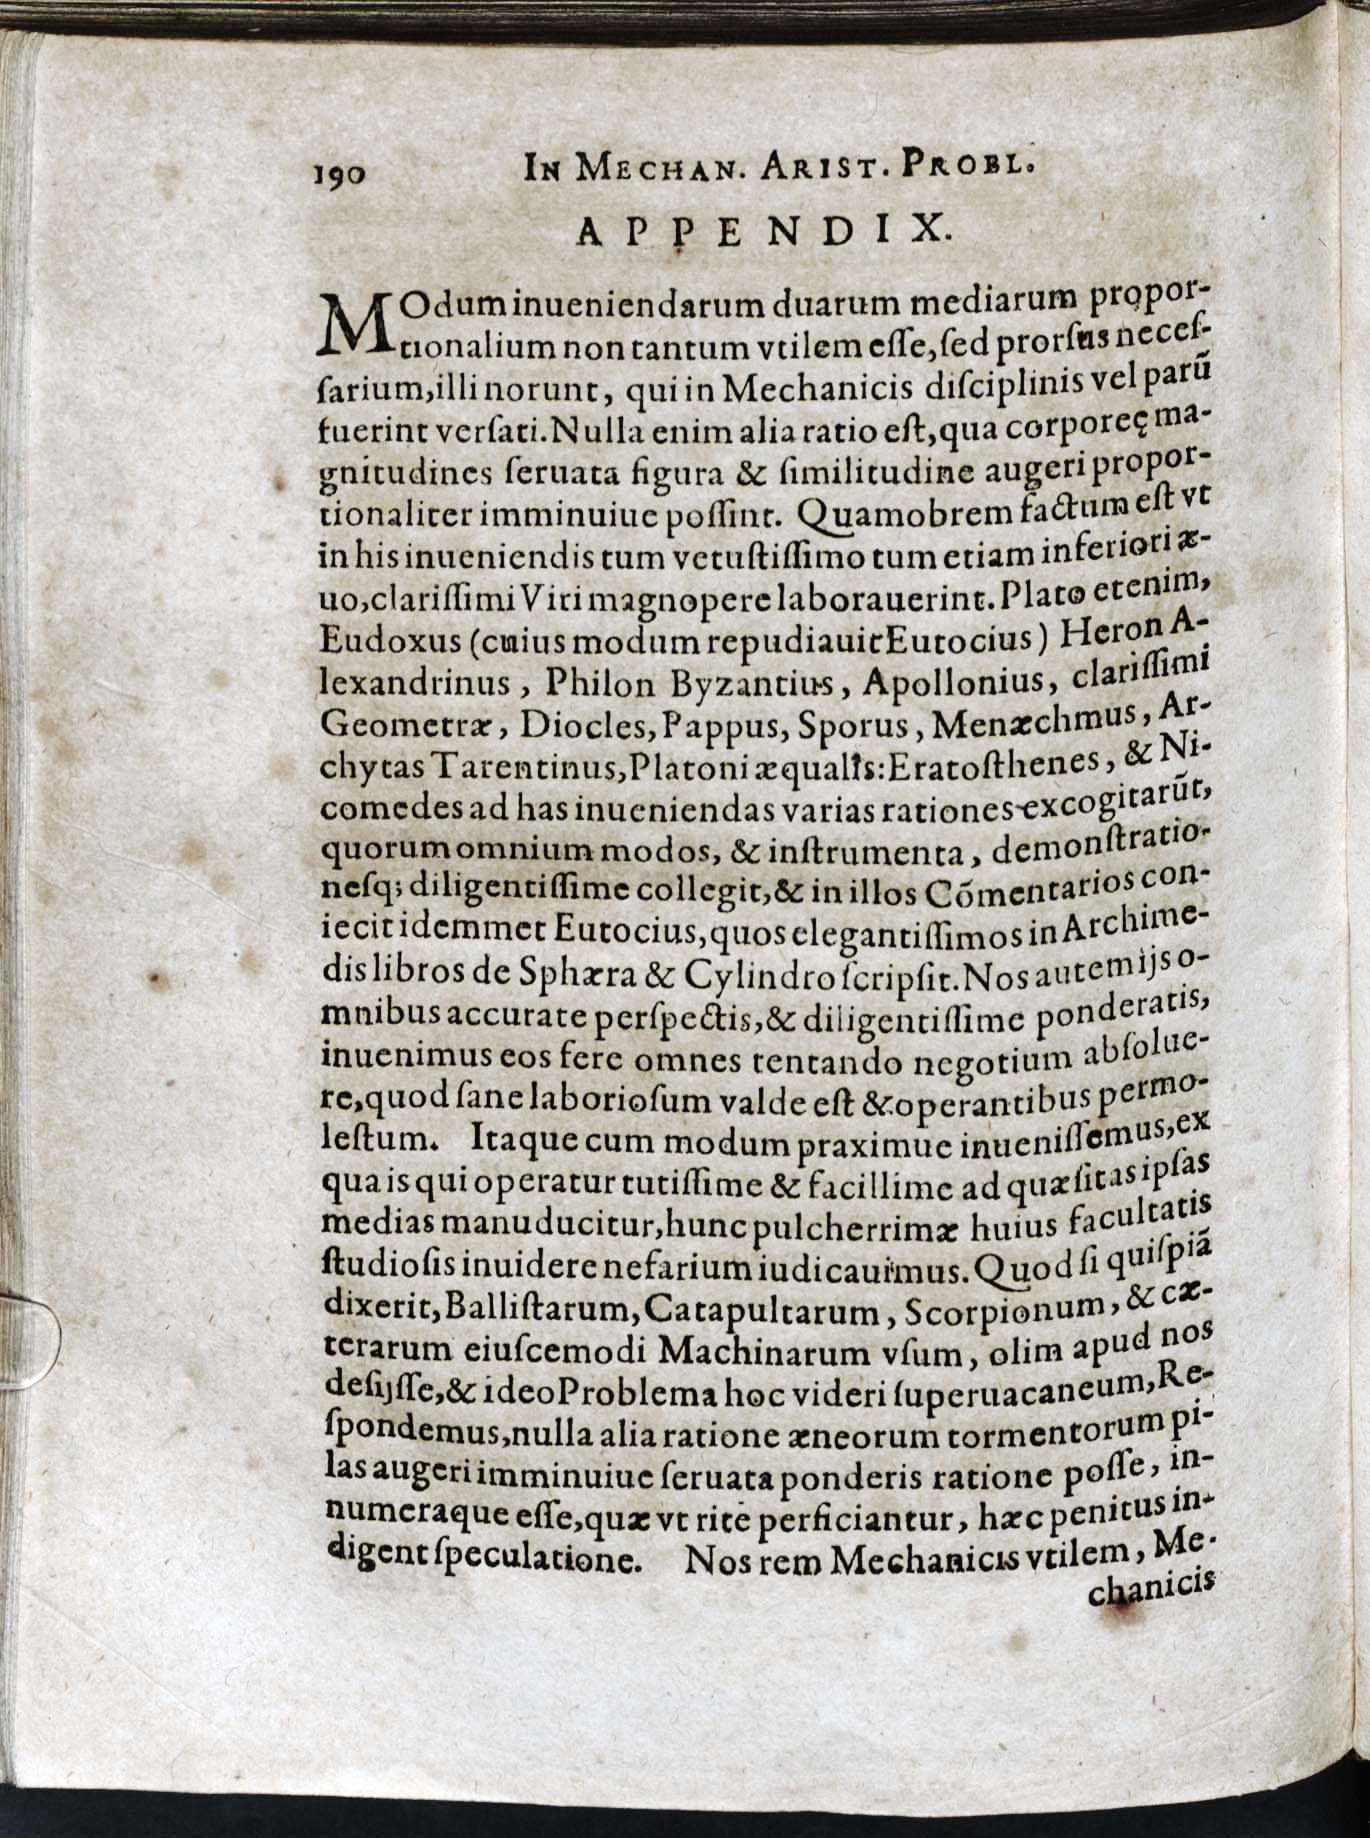 190 IN MECHAN. ARIST. PROBL.
APPENDIX.
MOdum inueniendarum duarum mediarum propor-
tionalium non tantum vtilem eſſe, ſed prorſus neceſ-
ſarium, illi norunt, qui in Mechanicis diſciplinis vel parũ
fuerint verſati. Nulla enim alia ratio eſt, qua corporeę ma-
gnitudines ſeruata figura & ſimilitudine augeri propor-
tionaliter imminuiue poſſint. Quamobrem factum eſt vt
in his inueniendis tum vetuſtiſſimo tum etiam inferiori æ-
uo, clariſſimi Viri magnopere laborauerint. Plato etenim,
Eudoxus (cuius modum repudiauit Eutocius) Heron A-
lexandrinus, Philon Byzantius, Apollonius, clariſſimi
Geometræ, Diocles, Pappus, Sporus, Menæchmus, Ar-
chytas Tarentinus, Platoni æqualis: Eratoſthenes, & Ni-
comedes ad has inueniendas varias rationes excogitarũt,
quorum omnium modos, & inſtrumenta, demonſtratio-
neſq; diligentiſſime collegit, & in illos Cõmentarios con-
iecit idemmet Eutocius, quos elegantiſſimos in Archime-
dis libros de Sphæra & Cylindro ſcripſit. Nos autem ijs o-
mnibus accurate perſpectis, & diligentiſſime ponderatis,
inuenimus eos fere omnes tentando negotium abſolue-
re, quod ſane laborioſum valde eſt & operantibus permo-
leſtum. Itaque cum modum praximue inueniſſemus, ex
qua is qui operatur tutiſſime & facillime ad quæſitas ipſas
medias manuducitur, hunc pulcherrimæ huius facultatis
ſtudioſis inuidere nefarium iudicauimus. Quod ſi quiſpiã
dixerit, Balliſtarum, Catapultarum, Scorpionum, & cæ-
terarum eiuſcemodi Machinarum vſum, olim apud nos
deſijſſe, & ideo Problema hoc videri ſuperuacaneum, Re-
ſpondemus, nulla alia ratione æneorum tormentorum pi-
las augeri imminuiue ſeruata ponderis ratione poſſe, in-
numeraque eſſe, quæ vt rite perficiantur, hæc penitus in-
digent ſpeculatione. Nos rem Mechanicis vtilem, Me-
chanicis